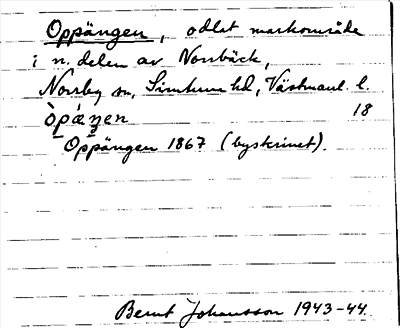 Oppängen, odlat markområde
i n. delen av Norrbäck,
Norrby sn, Simtuna hd, Västmanl. l.
òpä́ŋen 18
Oppängen 1867 (byskrinet).
Bernt Johansson 1943-44.